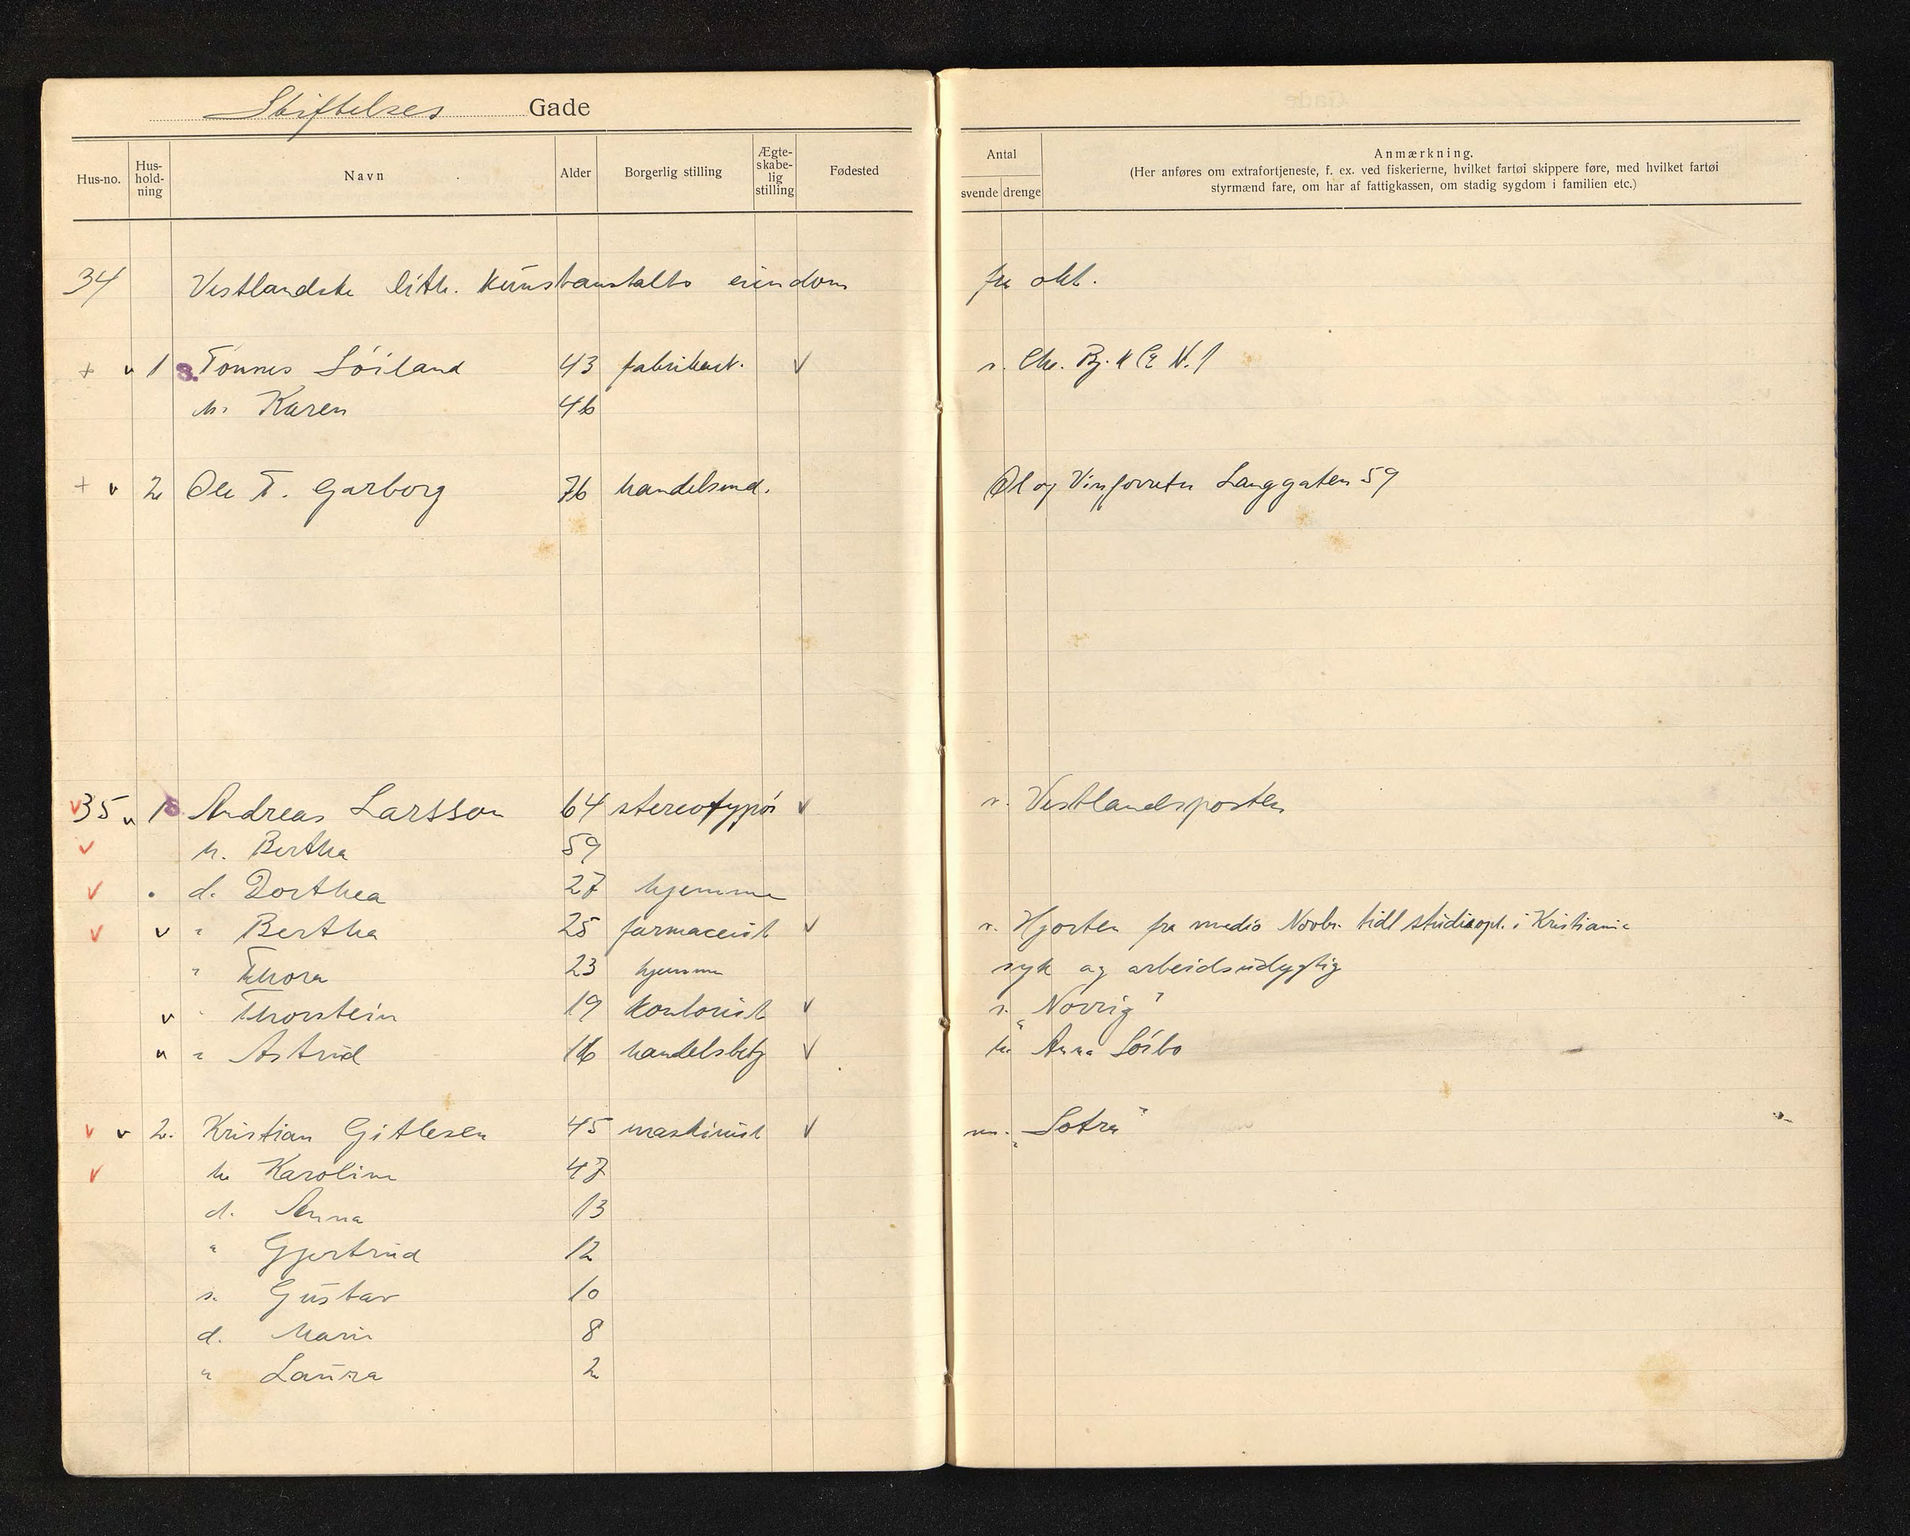 Stiftelses Gade
Hus-no. Hus-hold-ning Navn Alder Borgerlig stilling Ægte-skabe-lig stilling Fødested
Antal svende drenge Anmærkning.
(Her anføres om extrafortjeneste, f. ex. ved fiskerierne, hvilket fartøi skippere føre, med hvilket fartøi
styrmænd fare, om har af fattigkassen, om stadig sygdom i familien etc.)
34 Vestlandske lith. kunstanstalts eiendom fra okt.
+ v 1 Tønnes Söiland 43 fabrikart. v
h. Karen 46
+ v 2 Ole T. Garborg 76 handelsmd. Øl og Vinforretn Langgaten 59
v 35 v 1 Andreas Larsson 64 stereotypör v v. Vestlandsposten
v h. Bertha 59
v d. Dorthea 27 hjemme
v v " Bertha 25 farmaceut v v. Hjorten fra medio Novbr. tidl studieopl. i Kristiania
" Thora 23 hjemme syk og arbeidsudygtig
v " Thorstein 19 kontorist v v. "Norrig"
v " Astrid 16 handelsbetj v h. Anna Sörbo
v v 2. Kristian Gitlesen 45 maskinist v m. "Sotra"
v h. Karoline 47
d. Anna 13
" Gjertrud 12
s. Gustav 10
d. Marie 8
" Laura 2